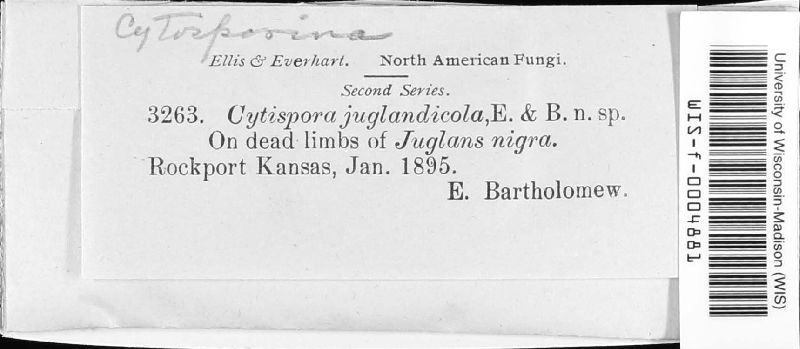 Cytosporina
Ellis & Everhart. North American Fungi.
Second Series.
3263. Cytispora juglandicola,E. & B. n. sp.
On dead limbs of Juglans nigra.
Rockport Kansas, Jan. 1895.
E. Bartholomew.
University of Wisconsin-Madison (WIS)
WIS-f-0004881